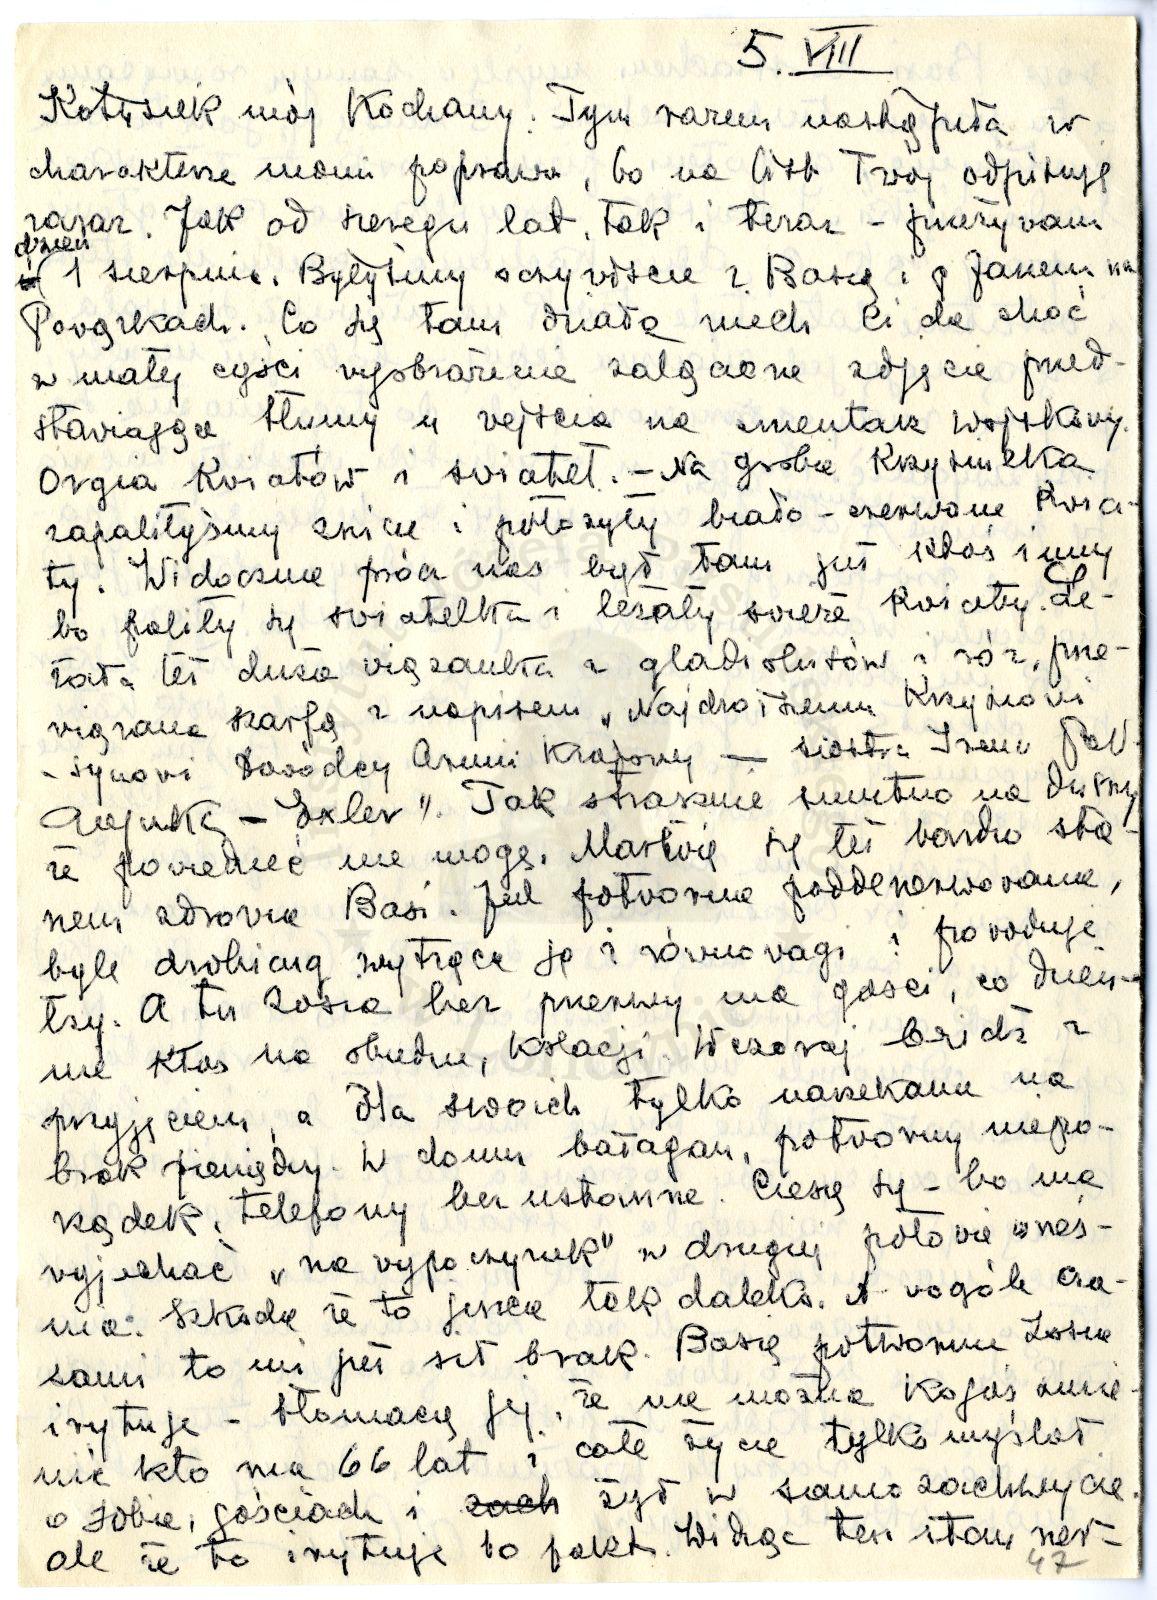 5. VIII
Kotusiek mój Kochany. Tym razem nastąpiła w
charakterze moim poprawa, bo na list Twój odpisuję
zaraz. Jak od szeregu lat, tak i teraz – przeżywam
dzień
1 sierpnia. Byłyśmy oczywiście z Basią i p Janem na
Powązkach. Co się tam działo niech Ci da choć
w małej części wyobrażenie załączone zdjęcie przed-
stawiające tłumy u wejścia na cmentarz wojskowy.
Orgia kwiatów i świateł. – Na grobie Krzysieńka
zapaliłyśmy znicze i położyły biało-czerwone kwia-
ty. Widocznie prócz nas był tam już ktoś inny
bo paliły się światełka i leżały świeże kwiaty. Le-
żała też duża wiązanka z gladiolusów i róż, prze-
wiązana szarfą z napisem „Najdroższemu Krzysiowi
- synowi Dowódcy Armii Krajowej — siostra Irena
– Exler". Tak strasznie smutno na duszy
że powiedzieć nie mogę. Martwię się też bardzo sta-
nem zdrowia Basi. Jest potwornie poddenerwowana,
byle drobiazg wytrąca ją z równowagi i powoduje
łzy. A tu Zosia bez przerwy ma gości, co dzień-
nie ktoś na obiedzie, kolacji. Wczoraj bridż z
przyjęciem, a dla swoich tylko narzekanie na
brak pieniędzy. W domu bałagan, potworny niepo-
rządek, telefony bezustanne. Cieszę się – bo ma
wyjechać „na wypoczynek" w drugiej połowie wrześ-
nia. Szkoda że to jeszcze tak daleko. A wogóle cza-
sami to mi już sił brak. Basię potwornie Zosia
irytuje – tłomaczę jej, że nie można kogoś zmie-
nić kto ma 66 lat i całe życie tylko myślał
o sobie, gościach i zach żył w samo zachwycie.
ale że to irytuje to fakt. Widząc ten stan ner-
47